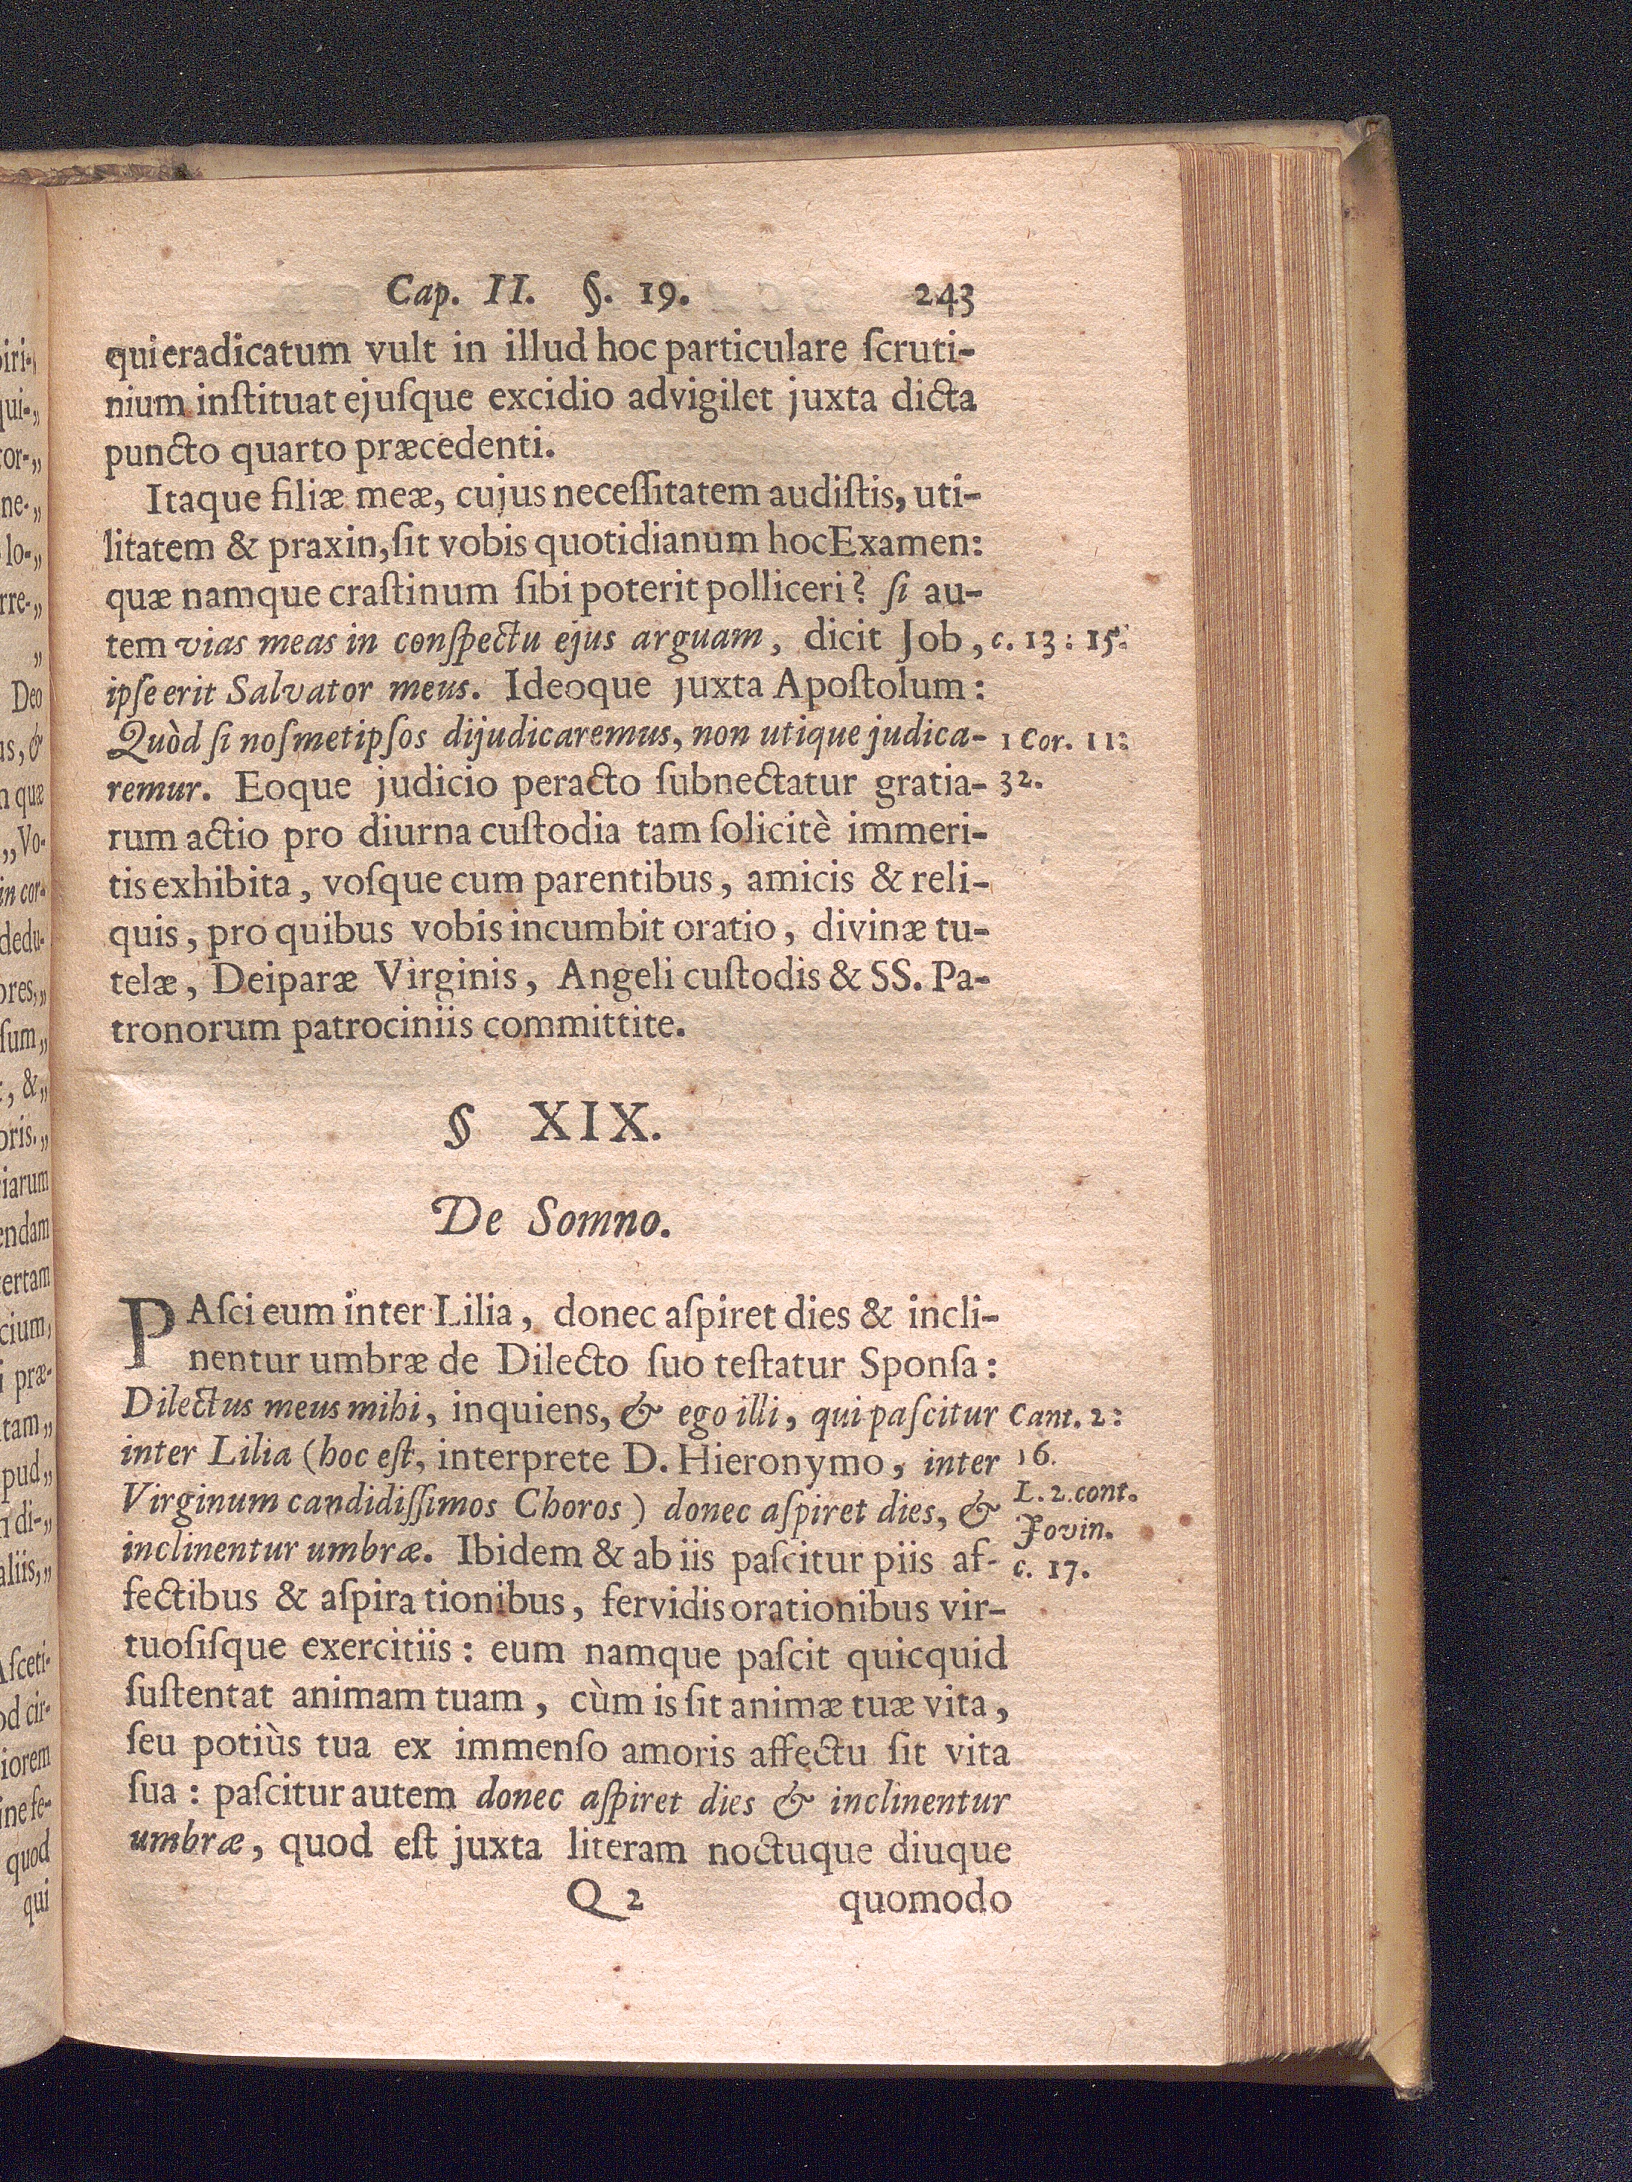 Cap. II. §. 19. 243
qui eradicatum vult in illud hoc particulare ſcruti-
nium inſtituat ejuſque excidio advigilet juxta dicta
puncto quarto præcedenti.
Itaque filiæ meæ, cujus neceſſitatem audiſtis, uti-
litatem & praxin, ſit vobis quotidianum hoc Examen:
quæ namque craſtinum ſibi poterit polliceri? ſi au-
tem vias meas in conſpectu ejus arguam, dicit Job, c. 13: 15.
ipſe erit Salvator meus. Ideoque juxta Apoſtolum:
Quòd ſi noſmetipſos dijudicaremus, non utique judica- 1 Cor. 11:
remur. Eoque judicio peracto ſubnectatur gratia- 32.
rum actio pro diurna cuſtodia tam ſolicitè immeri-
tis exhibita, voſque cum parentibus, amicis & reli-
quis, pro quibus vobis incumbit oratio, divinæ tu-
telæ, Deiparæ Virginis, Angeli cuſtodis & SS. Pa-
tronorum patrociniis committite.
§ XIX.
De Somno.
PAſci eum inter Lilia, donec aſpiret dies & incli-
nentur umbræ de Dilecto ſuo teſtatur Sponſa:
Dilectus meus mihi, inquiens, & ego illi, qui paſcitur Cant. 2:
inter Lilia (hoc eſt, interprete D. Hieronymo, inter 16.
Virginum candidiſſimos Choros) donec aſpiret dies, & L. 2. cont.
Jovin.
inclinentur umbræ. Ibidem & ab iis paſcitur piis af- c. 17.
fectibus & aſpira tionibus, fervidis orationibus vir-
tuoſiſque exercitiis: eum namque paſcit quicquid
ſuſtentat animam tuam, cùm is ſit animæ tuæ vita,
ſeu potiùs tua ex immenſo amoris affectu ſit vita
ſua: paſcitur autem donec aſpiret dies & inclinentur
umbræ, quod eſt juxta literam noctuque diuque
Q 2 quomodo